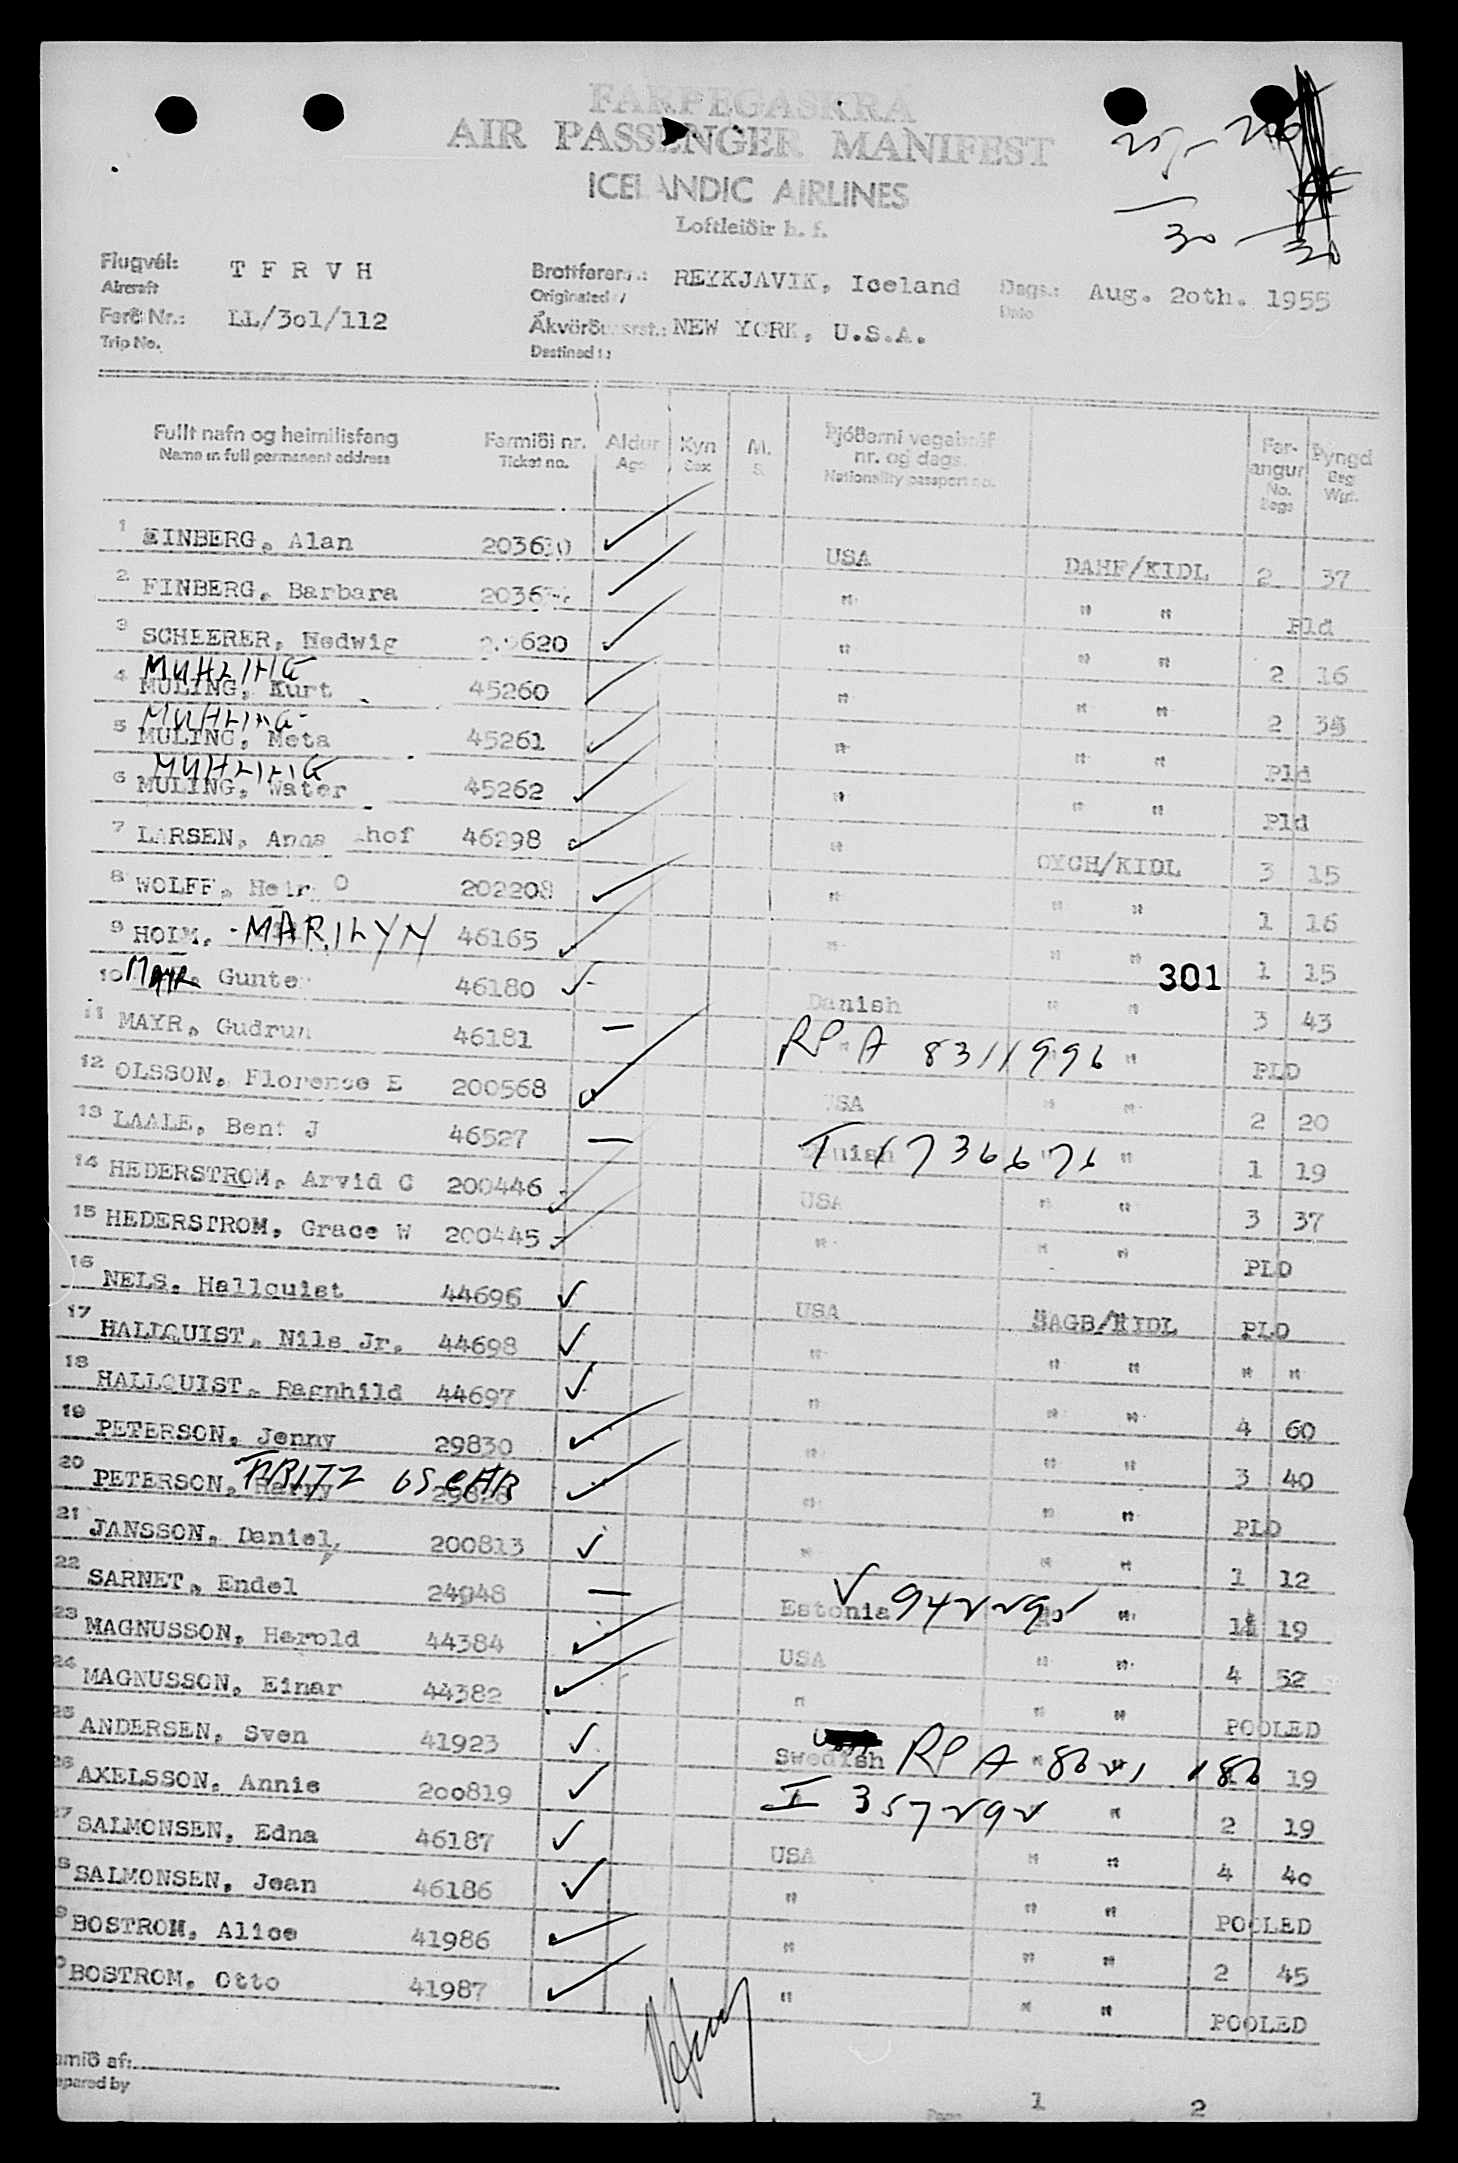 FARÞEGASKRÁ
AIR PASSENGER MANIFEST
ICELANDIC AIRLINES
Loftleiðir h. f.
30 30
Flugvél: T F R V H Brottfararst.: REYKJAVIK, Iceland Dags.: Aug. 2oth. 1955
Aircraft Originated Date
Ferð Nr.: LL/3o1/112 Ákvörðunarst.: NEW YORK, U.S.A.
Trip No. Destined to
Fullt nafn og heimilisfang Farmiði nr. Aldur Kyn M. Þjóðerni vegabréf Far- Þyngd
Name in full permanent address Ticket no. Age Sex S. nr. og dags. angur Bag
Nationality passport no. No. Wgt.
Bags
1 EINBERG, Alan 203630 ✓ USA DAHF/KIDL 2 37
2 FINBERG, Barbara ✓ " " " Pld
3 SCHEERER, Hedwig ✓ " " " 2 16
MUHLING
4 MULING, Kurt 45260 ✓ " " " 2 35
MUHLING
5 MULING, Meta 45261 ✓ " " " Pld
MUHLING
6 MULING, Water 45262 ✓ " " " Pld
7 LARSEN, Anna hof 46298 ✓ " OYCH/KIDL 3 15
8 WOLFF, O 202208 ✓ " " " 1 16
9 HOLM, MARILYN 46165 ✓ " " " 1 15
301
10 MAYR, Gunter 46180 ✓ Danish " " 3 43
11 MAYR, Gudrun 46181 — " RP A 8311996 " " PLD
12 OLSSON, Florence E 200568 ✓ USA " " 2 20
13 LAALE, Bent J 46527 — Danish T 1736676 " " 1 19
14 HEDERSTROM, Arvid C 200446 ✓ USA " " 3 37
15 HEDERSTROM, Grace W 200445 ✓ " " " PLD
16 NELS, Hallquist 44696 ✓ USA SAGB/KIDL PLD
17 HALLQUIST, Nils Jr. 44698 ✓ " " " " "
18 HALLQUIST, Ragnhild 44697 ✓ " " " 4 60
19 PETERSON, Jenny 29830 ✓ " " " 3 40
20 PETERSON, Harry FRITZ OSCAR 29828 ✓ " " " PLD
21 JANSSON, Daniel, 200813 ✓ " " " 1 12
22 SARNET, Endel 24948 — Estonia V 9422295 " " 1 19
23 MAGNUSSON, Harold 44384 ✓ USA " " 4 52
24 MAGNUSSON, Einar 44382 ✓ " " " POOLED
25 ANDERSEN, Sven 41923 ✓ Swedish RP A " " 19
26 AXELSSON, Annie 200819 ✓ I 3572292 " 2 19
27 SALMONSEN, Edna 46187 ✓ USA " " 4 40
8 SALMONSEN, Jean 46186 ✓ " " " POOLED
9 BOSTROM, Alice 41986 ✓ " " " 2 45
0 BOSTROM, Otto 41987 ✓ " " " POOLED
amið af:
epared by
Page 1 2